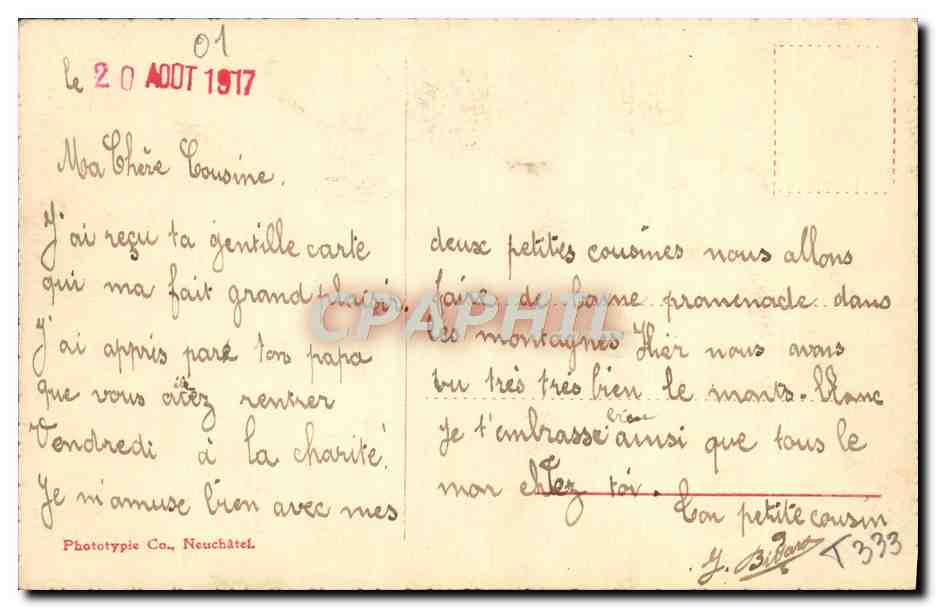 01
le 20 AOUT 1917
Ma Chère Cousine.
J'ai reçu ta gentille carte
qui ma fait grand plaisi.
J'ai appris pare ton papa
que vous etez rentrer
Vendredi à la charité.
Je m'amuse bien avec mes
Phototypie Co., Neuchâtel.
deux petites cousines nous allons
faire de bonne promenade dans
les montagnes Hier nous avons
vu très tres bien le monts. blanc
Je t'embrasse bien ainsi que tous le
mon chez toi.
Ton petite cousin
J. Bidard
T 333
CPAPHIL